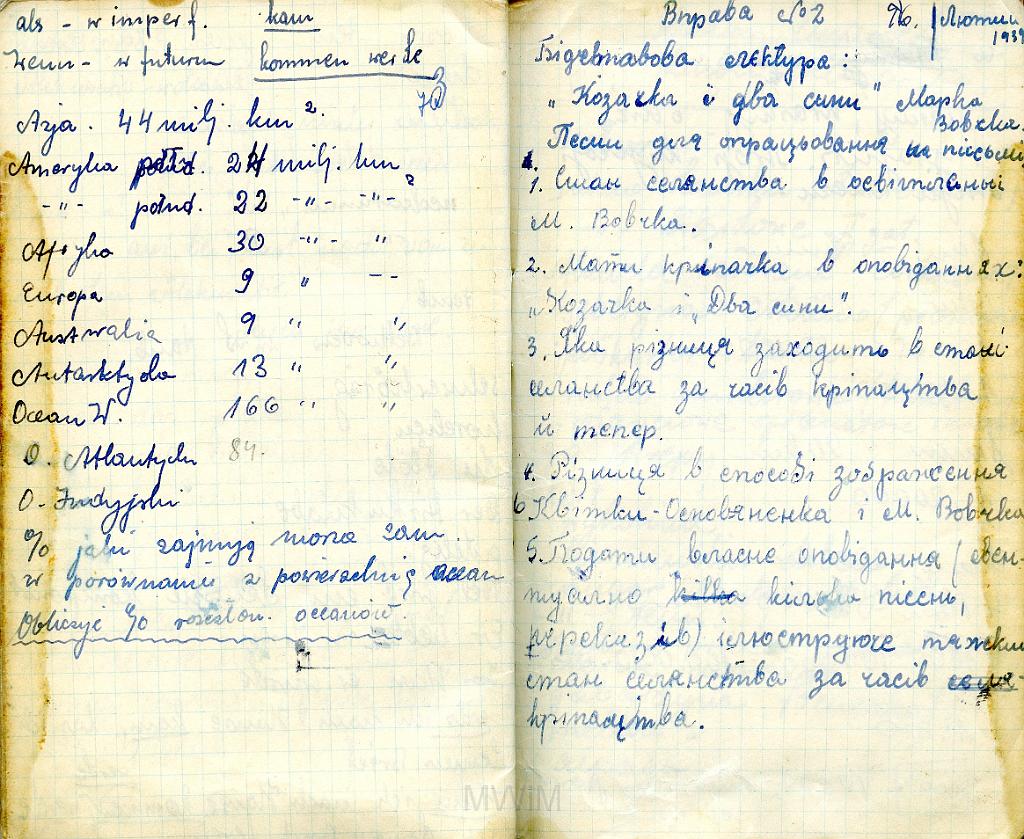 als - w imperf. kam
Wenn - w futurum kommen werde
Azja . 44 milj. km².
Ameryka półn. 24 milj. km
-"- połud. 22 -"- -"- ²
Afryka 30 -"- "
Europa 9 " --
Australia 9 " "
Antarktyda 13 " "
Ocean W. 166 " "
O. Atlantycki 84.
O - Indyjski
% jaki zajmują morza zam.
w porównaniu z powierzchnią ocean
Obliczyć % rozczłon. oceanów.
Вправа №2 /Лютий
1939
Відчитавова лєктура :
„Козачка і два сини" Марка
Вовчка.
Теми для опрацьовання на письмі
1. Стан селянства в освітленні
М. Вовчка.
2. Мати кріпачка в оповіданнях:
„Козачка і „Два сини".
3. Яка різниця заходить в стані
селанства за часів кріпацтва
й тепер.
4. Різниця в способі зображення
Квітки-Основяненка і М. Вовчка
5. Подати власне оповідання (евен-
туално kilka кілька пісень,
переказів) ілюструюче тяжкий
стан селанства за часів
кріпацтва.
MWiM